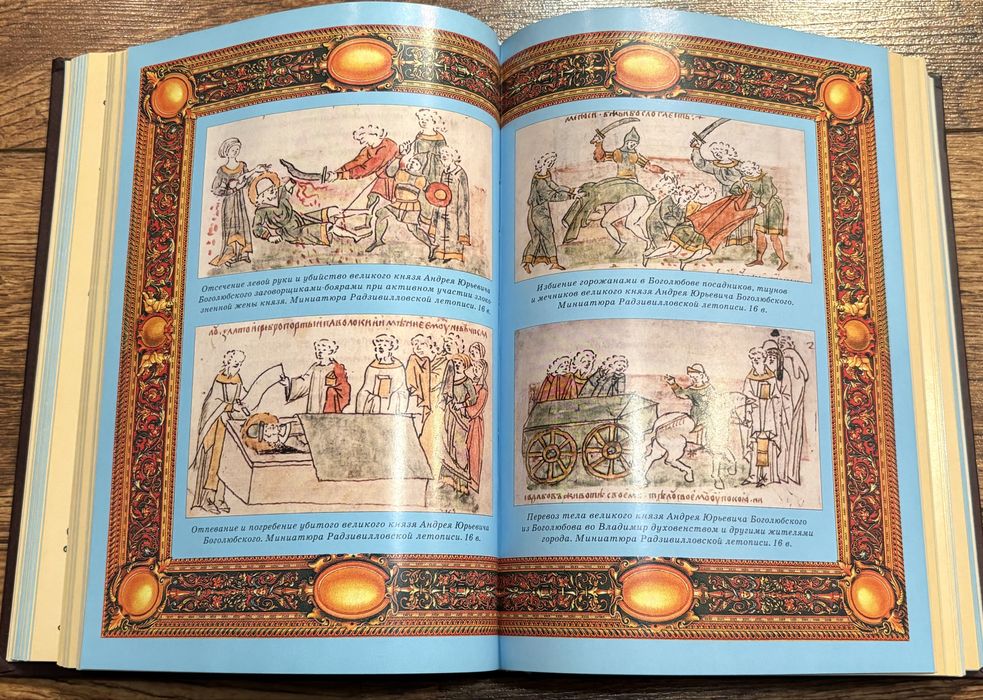 Отсечение левой руки и убийство великого князя Андрея Юрьевича
Боголюбского заговорщиками-боярами при активном участии злоко-
зненной жены князя. Миниатюра Радзивилловской летописи. 16 в.
Отпевание и погребение убитого великого князя Андрея Юрьевича
Боголюбского. Миниатюра Радзивилловской летописи. 16 в.
Избиение горожанами в Боголюбове посадников, тиунов
и мечников великого князя Андрея Юрьевича Боголюбского.
Миниатюра Радзивилловской летописи. 16 в.
Перевоз тела великого князя Андрея Юрьевича Боголюбского
из Боголюбова во Владимир духовенством и другими жителями
города. Миниатюра Радзивилловской летописи. 16 в.